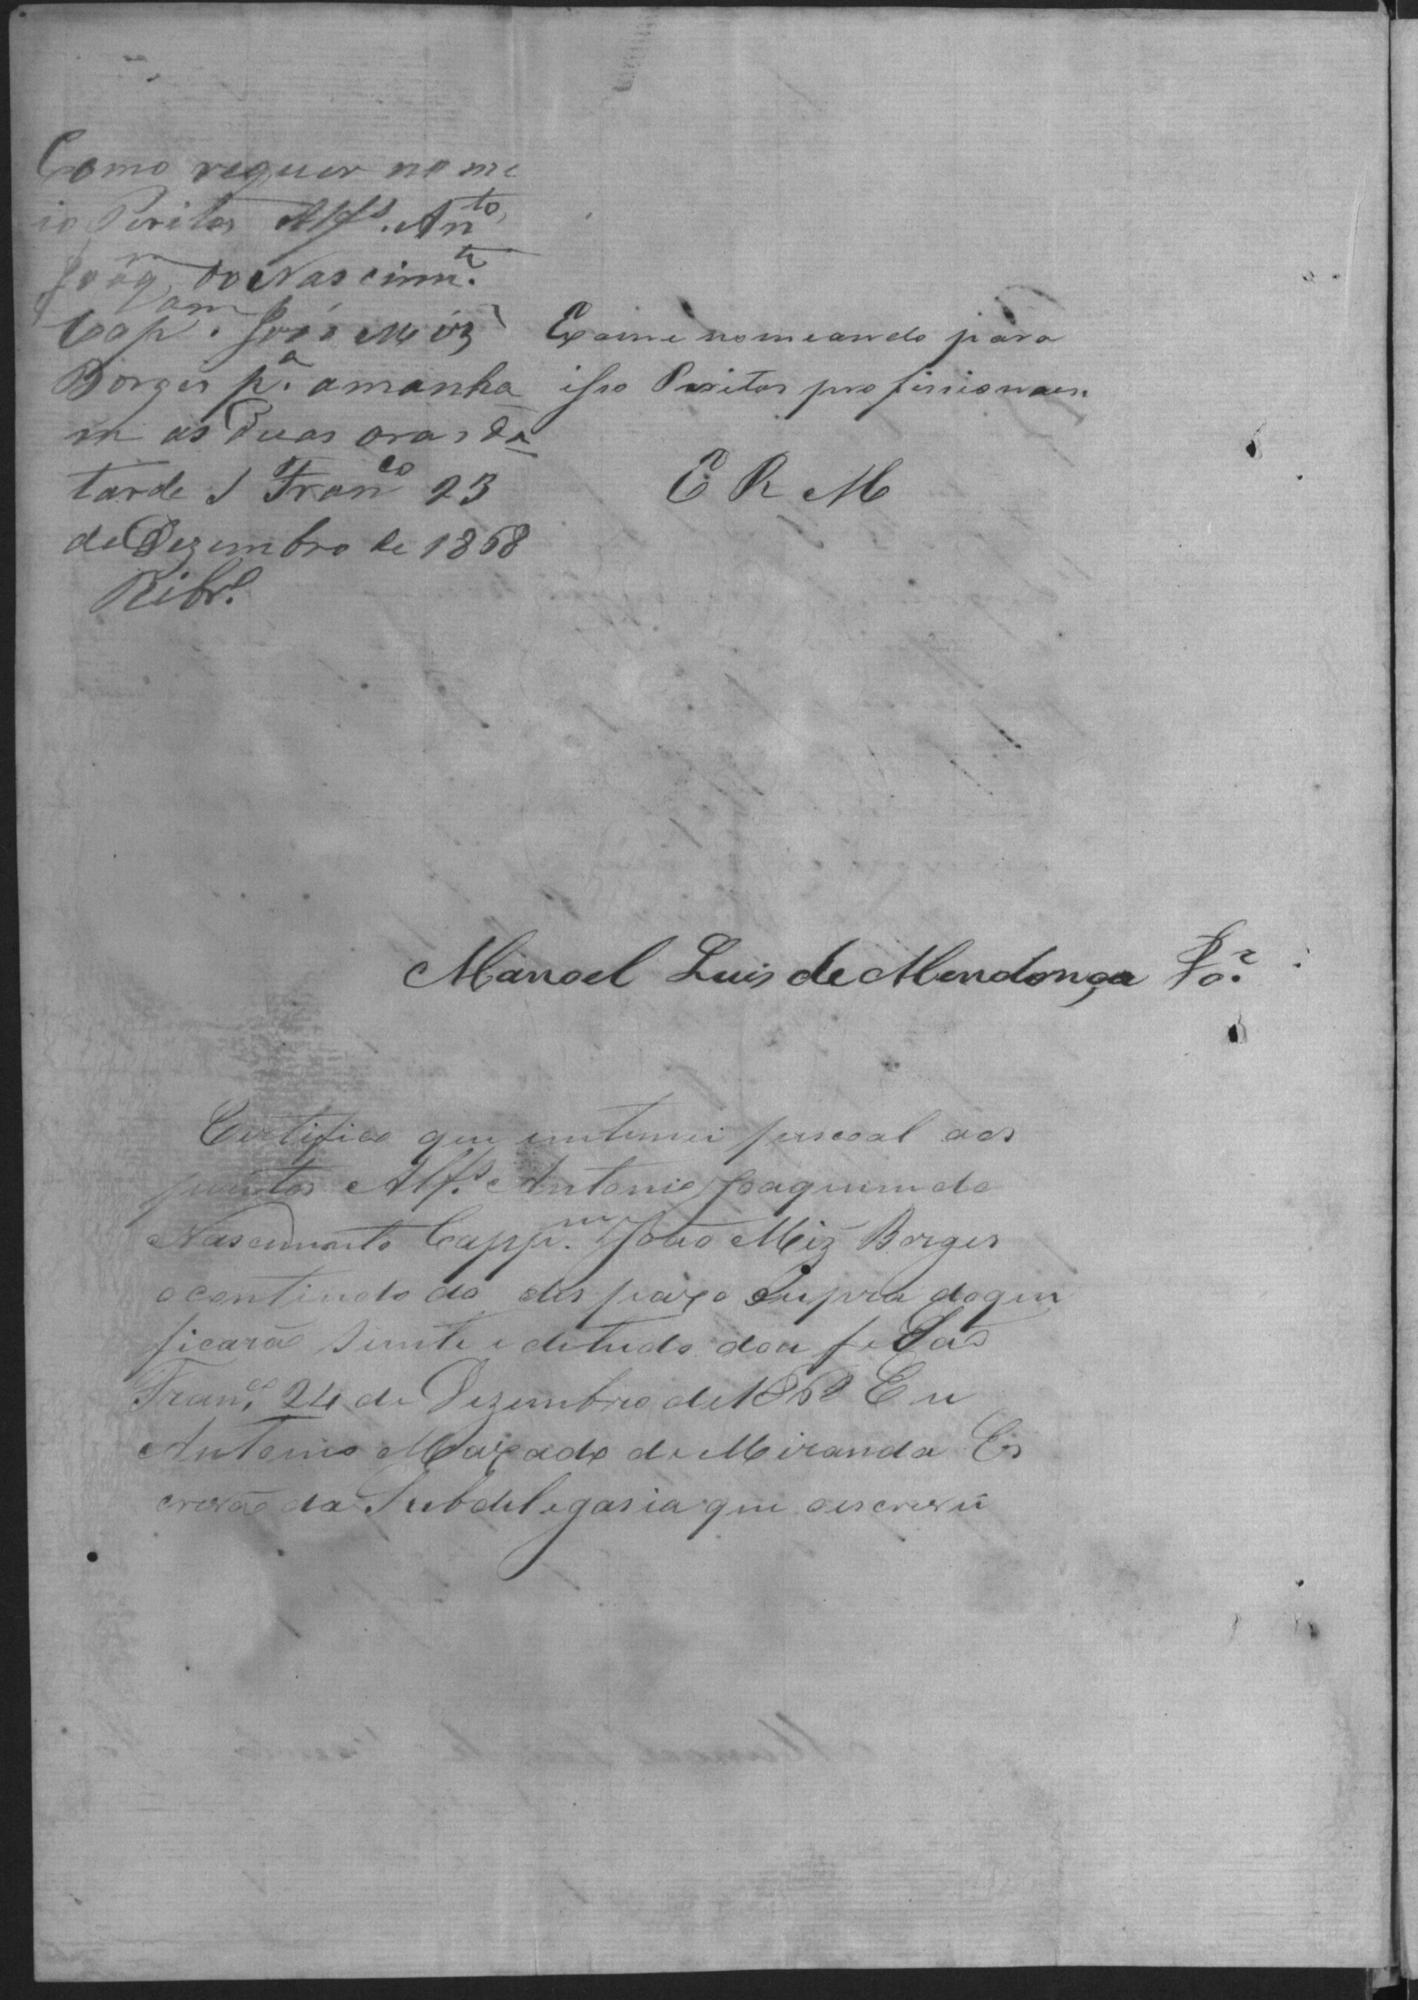 Como requer nome
io Peritos Alfs. Anto
Joaqm do Nascimto.
Capam. João Miz
Borges pa. amanha
m as Duas oras da
tarde S Franco 23
de Dezembro de 1868
Ribro.
Exame nomeando para
isso Peritos profissionaes.
E R M
Manoel Luis de Mendonça
Certifico que entemei pescoal aos
peritos Alfs. Antonio Joaquim do
Nascimento Cappm. João Miz Borges
o contiudo do despaxo Supra doque
ficarão siente e detudo dou fe São
Franco. 24 de Dezembro de 1868 Eu
Antonio Maxado de Miranda Es
crivão da Subdelegasia que oescreví